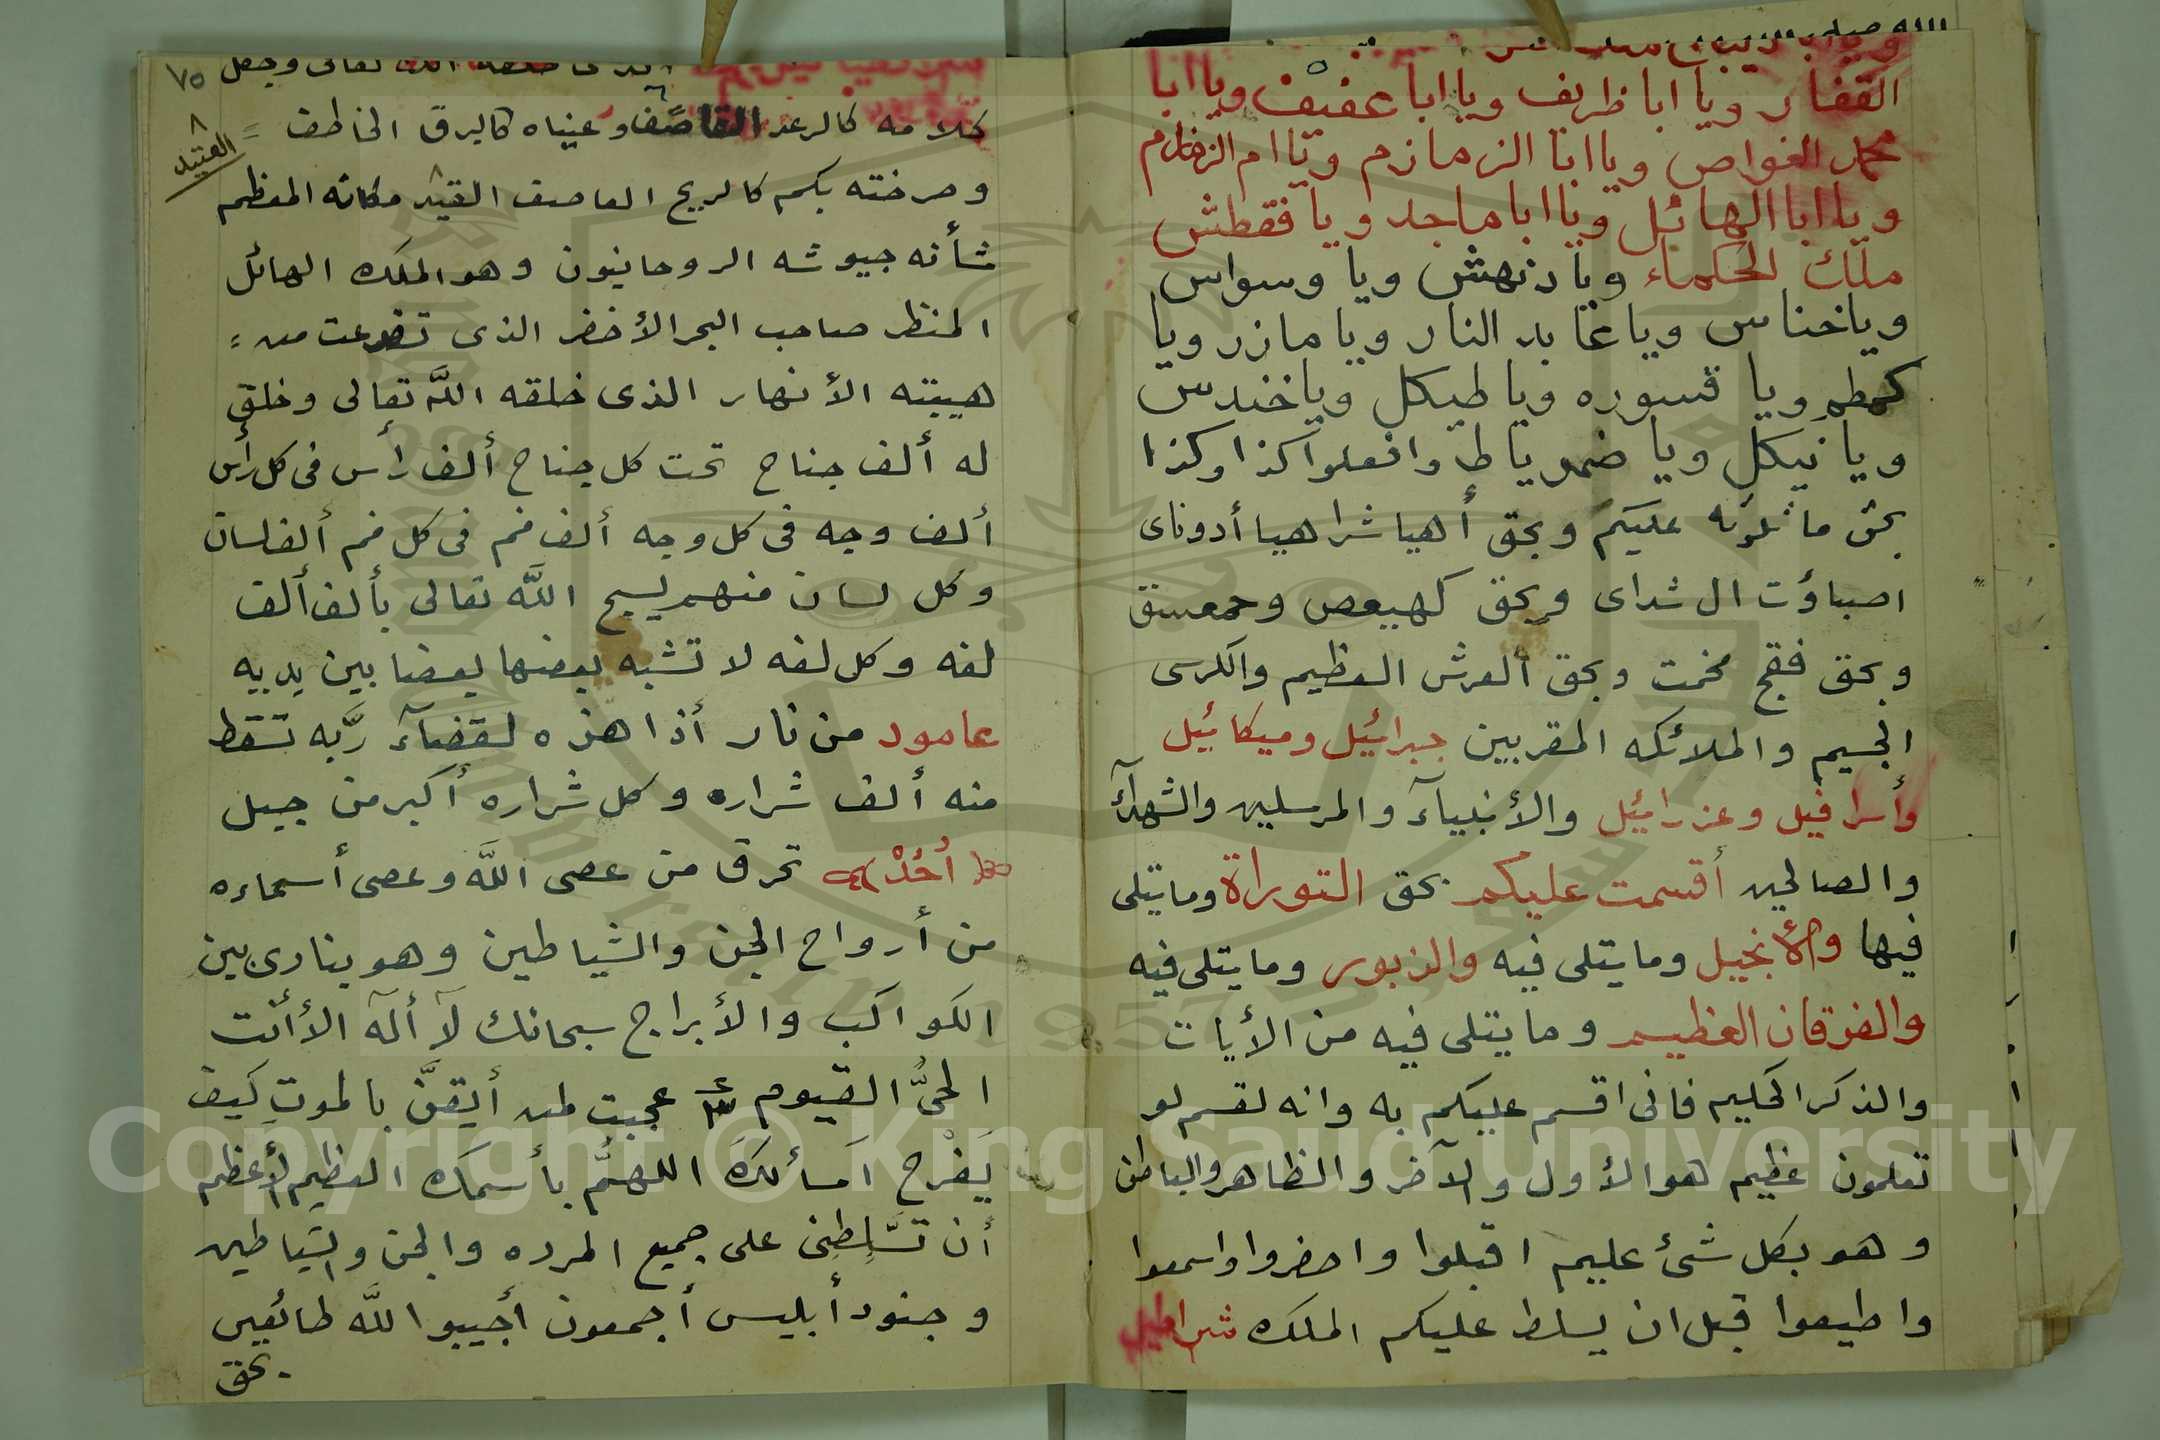 القفار ويا ابا ظريف ويا ابا عفيف ويا ابا
محمد الغواص ويا ابا الزمازم ويا ام الزمازم
ويا ابا الهائل ويا ابا ماجد ويا فقطش
ملك الحكماء ويا دنهش ويا وسواس
ويا خناس ويا عابد النار ويا مازر ويا
كمطم ويا قسوره ويا طيكل ويا خندس
ويا نيكل ويا ضمرياط وافعلوا كذا وكذا
بحق ما تلوته عليكم وبحق أهيا شراهيا أدوناى
اصباؤت ال شداى وبحق كهيعص وحمعسق
وبحق فقج مخمت وبحق ألعرش العظيم والكرسى
الجسيم والملائكه المقربين جبرائيل وميكائيل
وأسرافيل وعزرائيل والأنبيآء والمرسلين والشهدآء
والصالحين أقسمت عليكم بحق التوراة وما يتلى
فيها والأنجيل وما يتلى فيه والزبور وما يتلى فيه
والفرقان العظيم وما يتلى فيه من الأيات
والذكر الحكيم فانى اقسم عليكم به وانه لقسم لو
تعلمون عظيم هو الأول والآخر والظاهر والباطن
وهو بكل شئ عليم اقبلوا واحضروا واسمعوا
واطيعوا قبل ان يسلط عليكم الملك
٧٥
الذى خلقه الله تعالى وجعل
كلامه كالرعد القاصف وعيناه كالبرق الخاطف
وصرخته بكم كالريح العاصف القيد مكانه المعظم
العتيد
شأنه جيوشه الروحانيون وهو الملك الهائل
المنظر صاحب البحر الأخضر الذى تفرعت من
هيبته الأنهار الذى خلقه اللَّه تعالى وخلق
له ألف جناح تحت كل جناح ألف رأس فى كل رأس
ألف وجه فى كل وجه ألف فم فى كل فم ألف لسان
وكل لسان منهم يسبح اللَّه تعالى بألف ألف
لغه وكل لغه لا تشبه بعضها بعضا بين يديه
عامود من نار أذا هزه لقضآء ربَّه تسقط
منه ألف شراره وكل شراره أكبر من جبل
أُحُدْ تحرق من عصى اللَّه وعصى أسماءه
من أرواح الجن والشياطين وهو ينادى بين
الكواكب والأبراج سبحانك لآ ألَه الأ أنت
الحىُّ القيوم عجبت لمن أيقنَّ بالموت كيف
يَفْرح اسألك اللهمَّ بأسمك العظيم الأعظم
أن تسَّلطنى على جميع المرده والجن والشياطين
وجنود أبليس أجمعون أجيبوا اللَّه طائعين
بحق
Copyright © King Saud University
1957